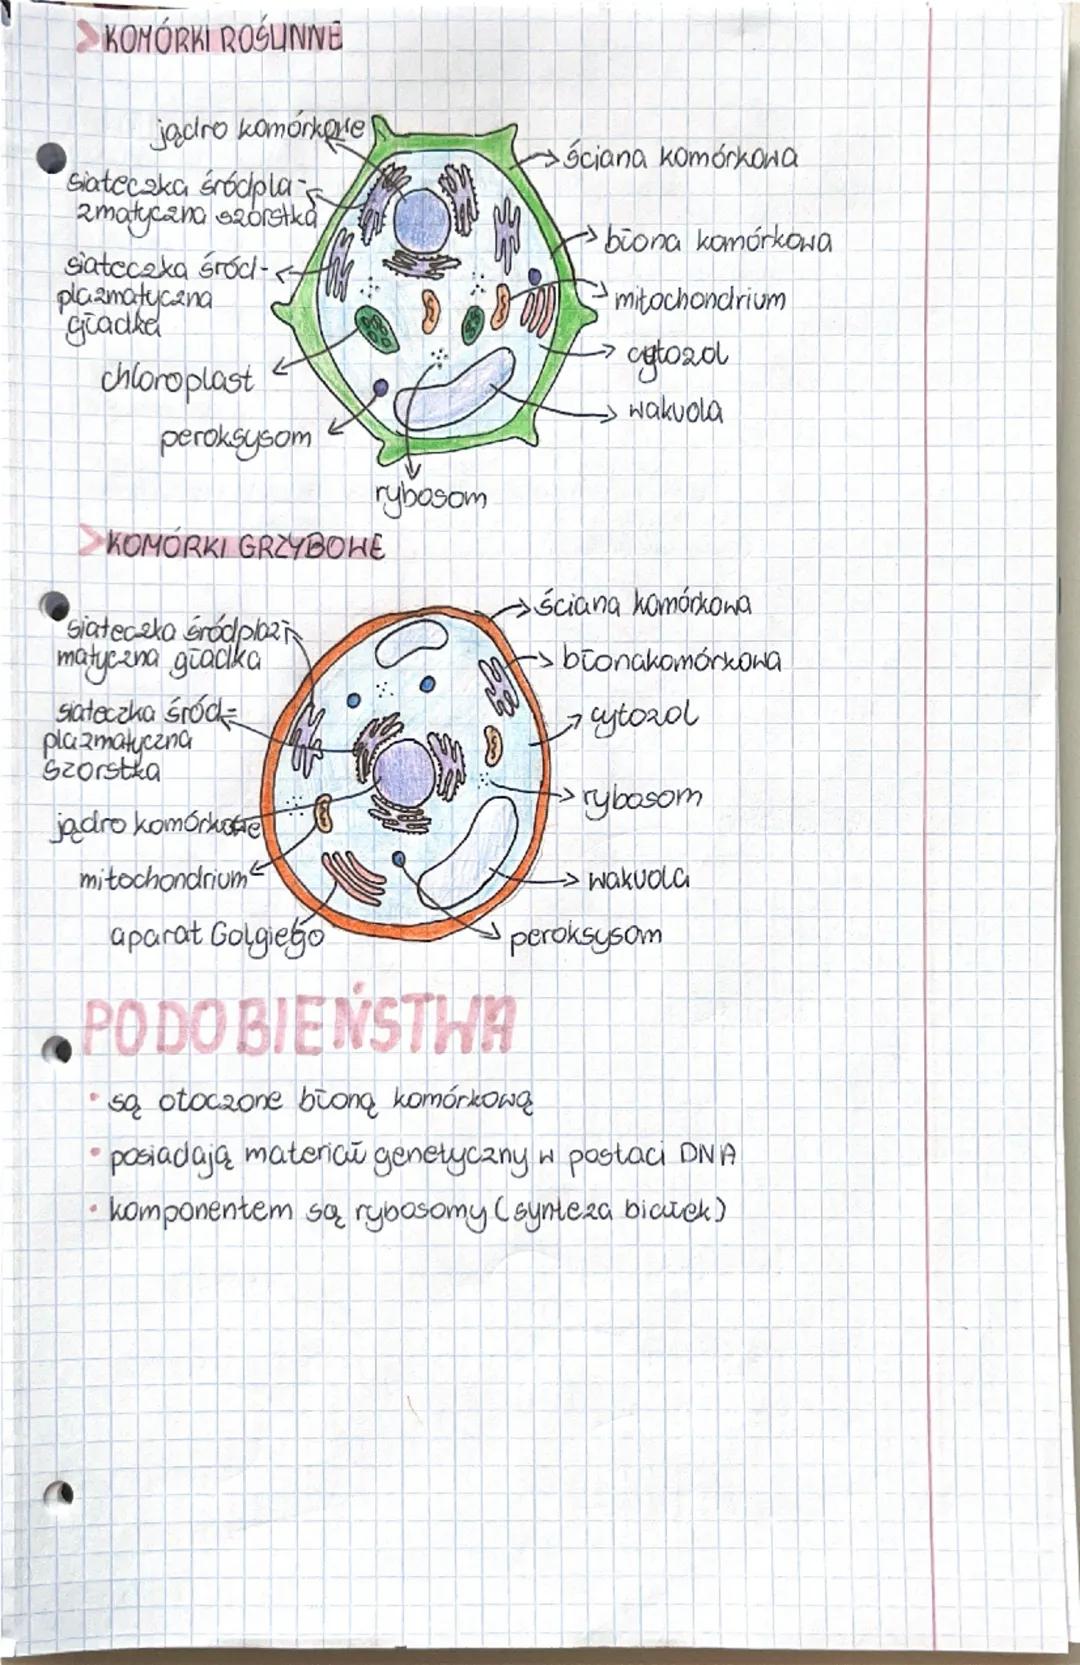 KOMÓRKI ROŚLINNE
jądro komórkowe
ściana komórkowa
siateczka śródpla-
zmatyczna szorstka
błona komórkowa
siateczka śród-
plazmatyczna
gładka
mitochondrium
cytozol
chloroplast
wakuola
peroksysom
rybosom
KOMÓRKI GRZYBOWE
ściana komórkowa
siateczka śródplaz-
matyczna gładka
błona komórkowa
siateczka śród-
plazmatyczna
szorstka
cytozol
rybosom
jądro komórkowe
mitochondrium
wakuola
aparat Golgiego
peroksysom
PODOBIEŃSTWA
• są otoczone błoną komórkową
• posiadają materiał genetyczny w postaci DNA
• komponentem są rybosomy (synteza białek)